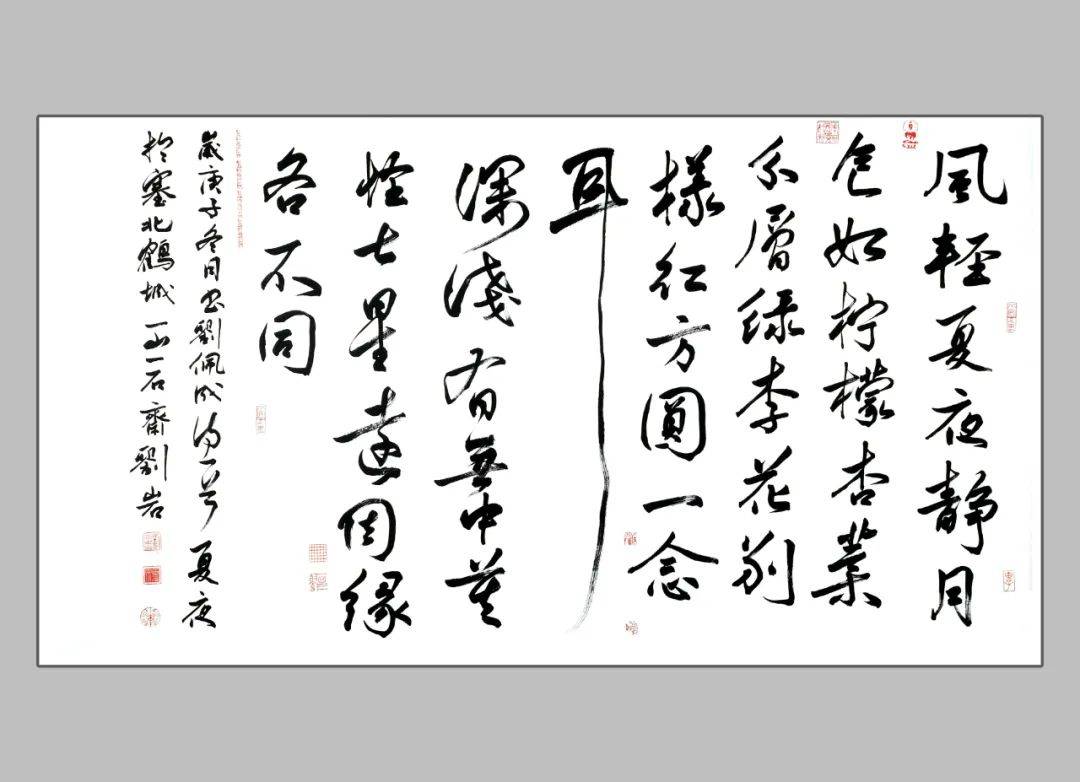 風輕夏夜靜月
色如柠檬杏葉
分層绿李花别
樣红方圓一念
耳
深淺有無中莫
怪七星遠因缘
各不同
歲庚子冬日書劉佩成詩一首夏夜
於塞北鶴城一山一石齋劉岩